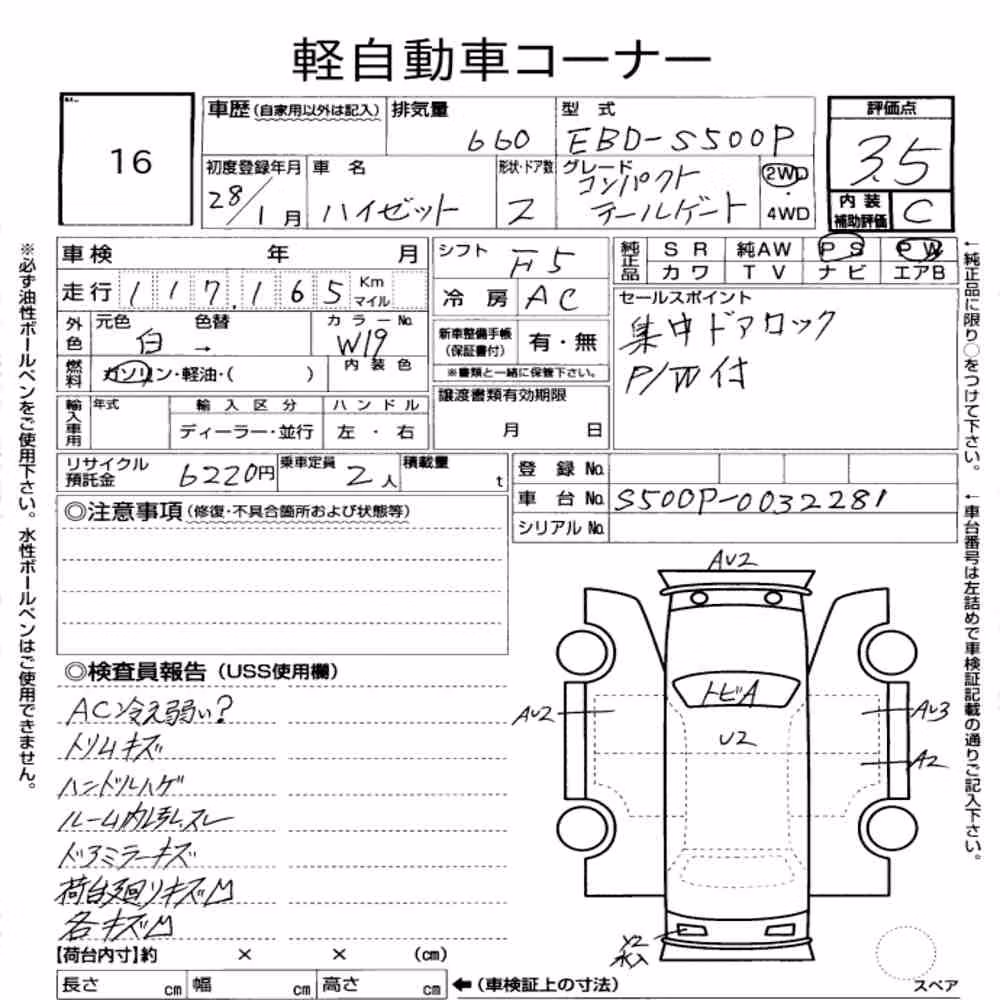 軽自動車コーナー
16
車歴 (自家用以外は記入) 排気量 型 式 評価点
660 EBD-S500P 3.5
初度登録年月 車 名 形状・ドア数 グレード
28/1月 ハイゼット 2 コンパクト テールゲート 2WD・4WD
内装補助評価 C
車検 年 月
シフト F5
純正品 SR 純AW PS PW
カワ TV ナビ エアB
走行 117,165 Km マイル
冷房 AC
セールスポイント
集中ドアロック
P/W付
外色 元色 色替 カラーNo.
白 → W19
新車整備手帳 (保証書付) 有・無
※書類と一緒に保管下さい。
燃料 ガソリン・軽油・( ) 内装色
譲渡書類有効期限
月 日
輸入車用 年式 輸入区分 ハンドル
ディーラー・並行 左・右
リサイクル預託金 6220円 乗車定員 2人 積載量 t
登録No.
車台No. S500P-0032281
シリアルNo.
◎注意事項 (修復・不具合箇所および状態等)
◎検査員報告 (USS使用欄)
AC冷え弱い?
トリムキズ
ハンドルハゲ
ルーム内ヨゴレスレ
ドアミラーキズ
荷台廻りキズ凹
各キズ凹
【荷台内寸】約 × × (cm)
長さ cm 幅 cm 高さ cm
←(車検証上の寸法)
AU2
トビA
AU2
U2
AU3
A2
Y2
水入
スペア
※必ず油性ボールペンをご使用下さい。水性ボールペンはご使用できません。
←純正品に限り○をつけて下さい。
←車台番号は左詰めで車検証記載の通りご記入下さい。